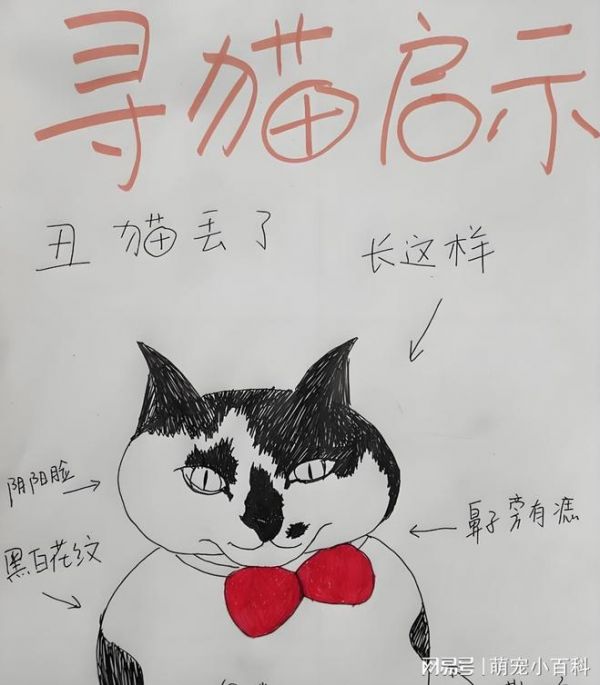 寻猫启示
丑猫丢了
长这样
阴阳脸
鼻子旁有痣
黑白花纹
网易号 | 萌宠小百科